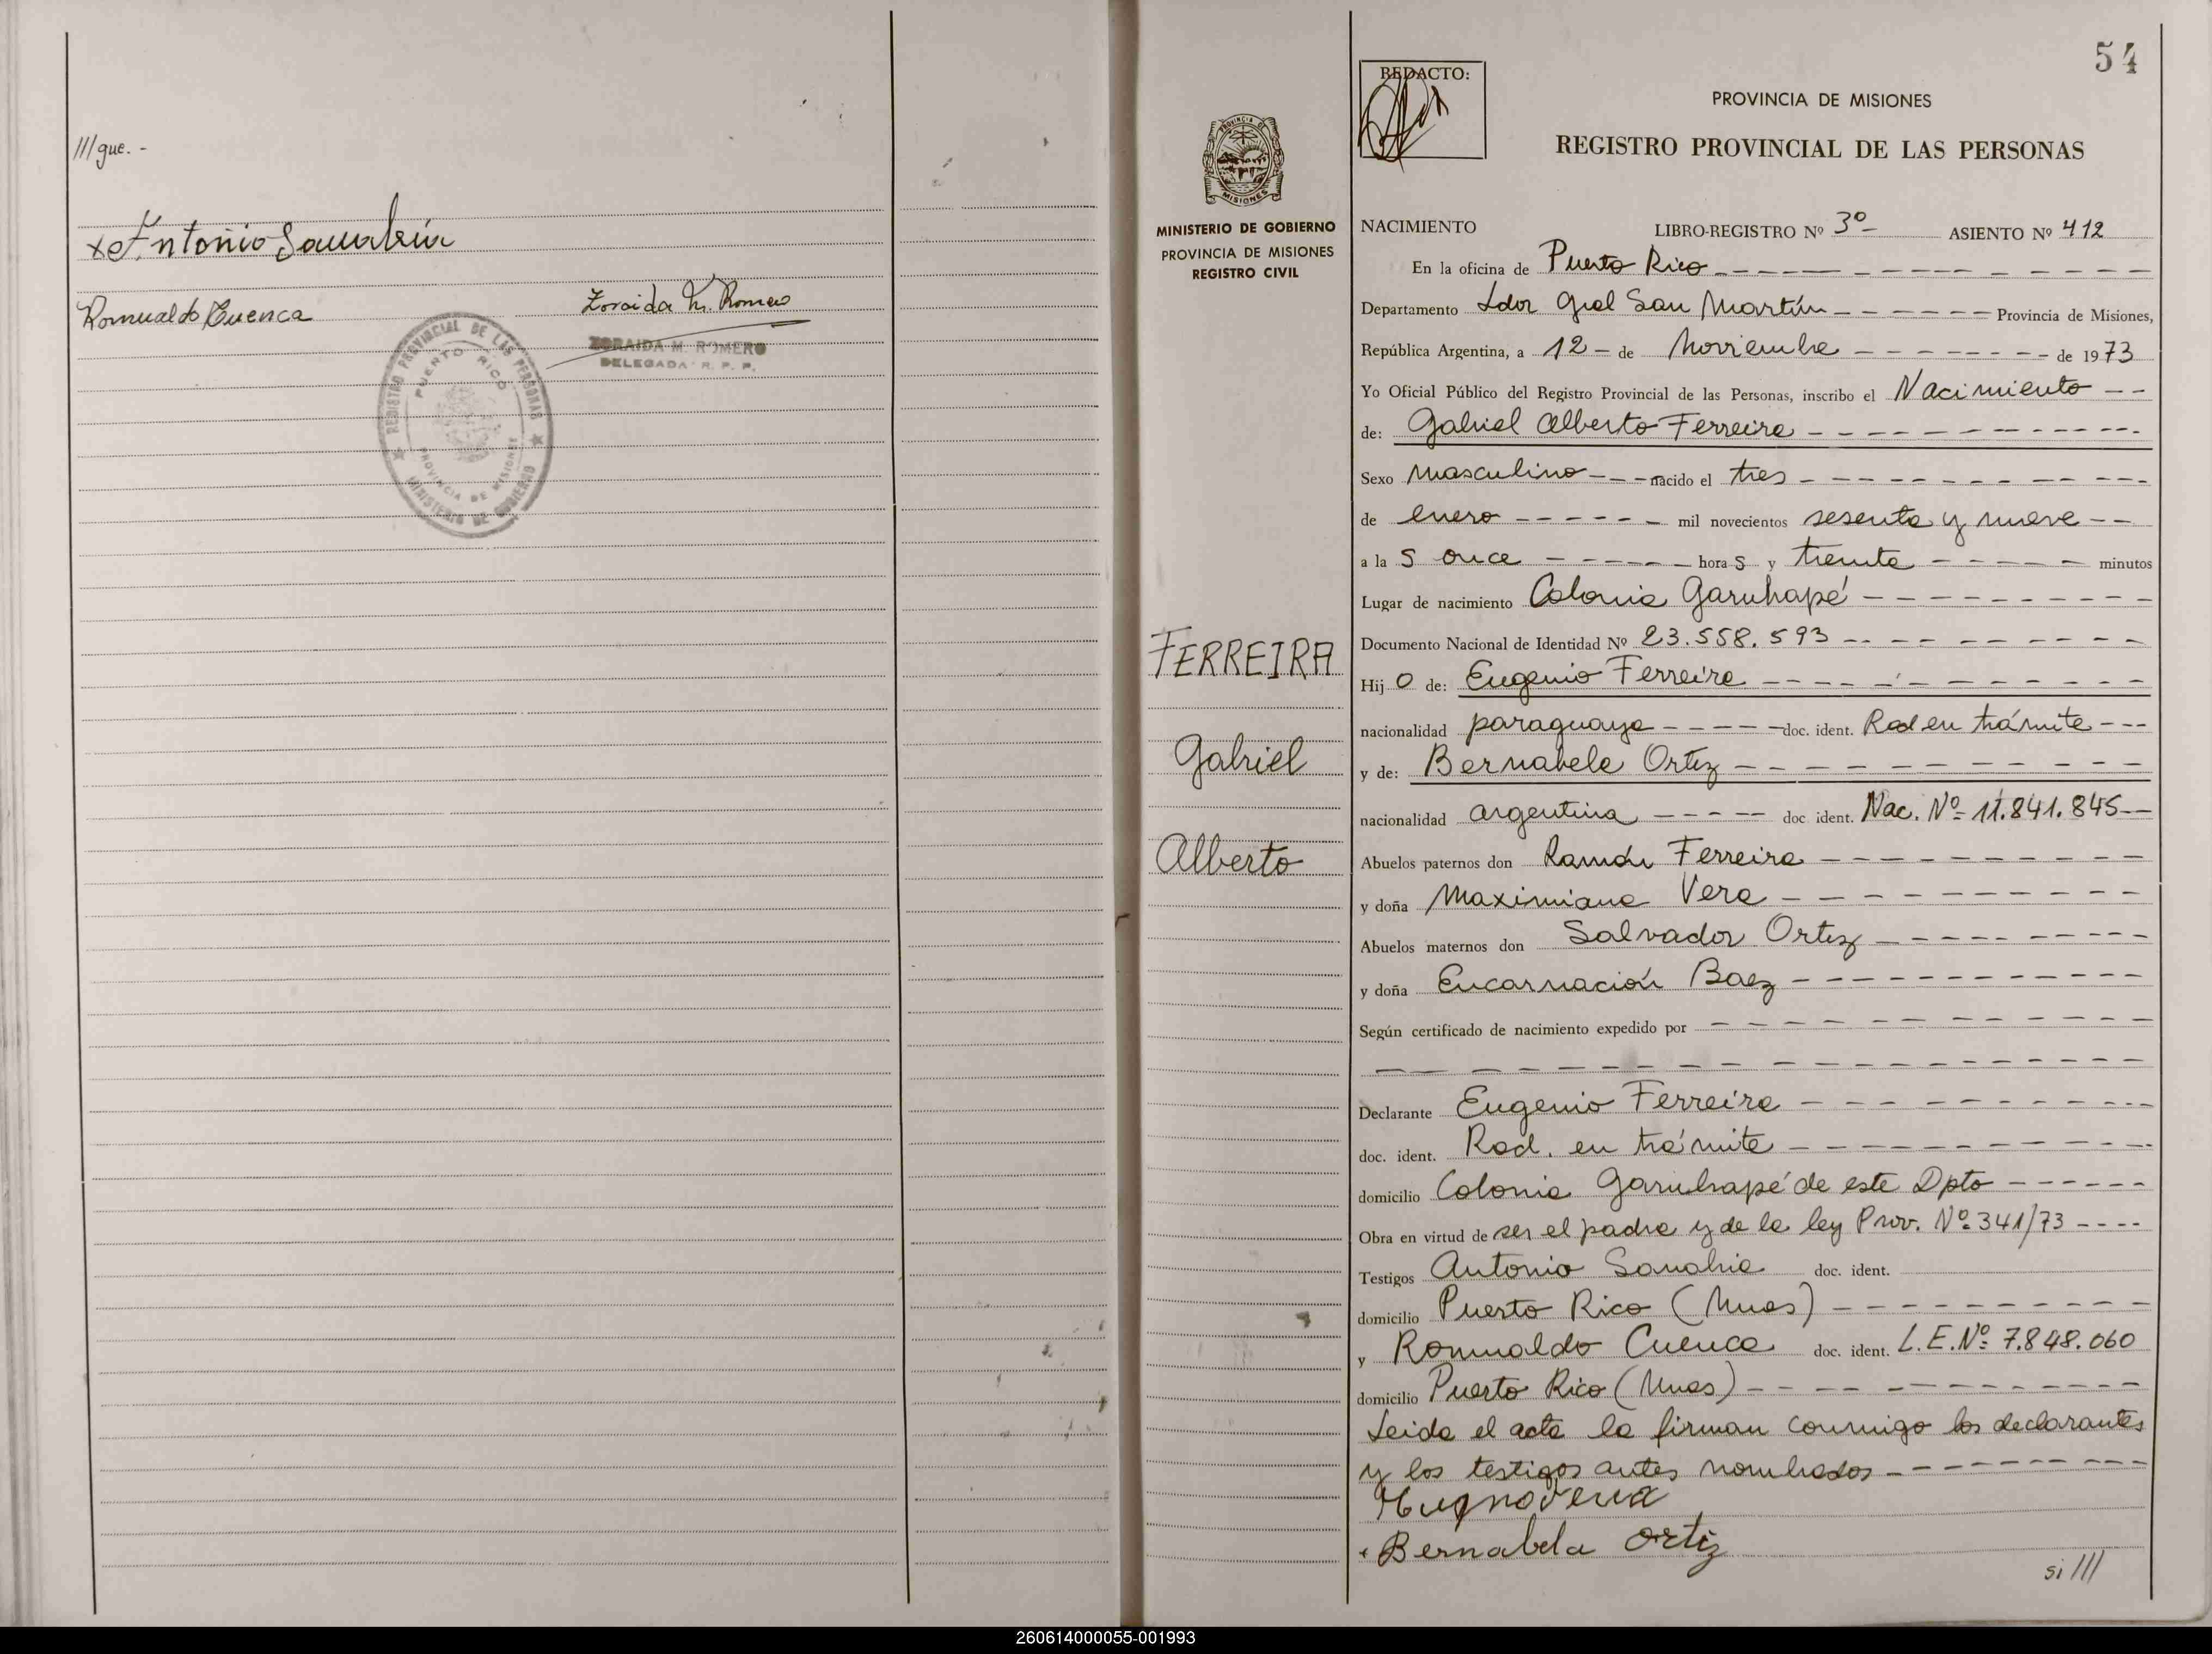 ///gue.-
x Antonio Sanabria
Romualdo Cuenca
Zoraida M. Romero
ZORAIDA M. ROMERO
DELEGADA R. P. P.
REGISTRO PROVINCIAL DE LAS PERSONAS
PUERTO RICO
PROVINCIA DE MISIONES
MINISTERIO DE GOBIERNO
PROVINCIA DE
MISIONES
MINISTERIO DE GOBIERNO
PROVINCIA DE MISIONES
REGISTRO CIVIL
FERREIRA
Gabriel
Alberto
54
REDACTO:
PROVINCIA DE MISIONES
REGISTRO PROVINCIAL DE LAS PERSONAS
NACIMIENTO LIBRO-REGISTRO Nº 3º- ASIENTO Nº 412
En la oficina de Puerto Rico
Departamento Ldor Gral San Martín Provincia de Misiones,
República Argentina, a 12 - de Noviembre de 1973
Yo Oficial Público del Registro Provincial de las Personas, inscribo el Nacimiento
de: Gabriel Alberto Ferreira
Sexo masculino nacido el tres
de enero mil novecientos sesenta y nueve
a la s once hora s y treinta minutos
Lugar de nacimiento Colonia Garuhapé
Documento Nacional de Identidad Nº 23.558.593
Hij o de: Eugenio Ferreira
nacionalidad paraguaya doc. ident. Rad en trámite
y de: Bernabela Ortiz
nacionalidad argentina doc. ident. Nac. Nº 11.841.845
Abuelos paternos don Ramón Ferreira
y doña Maximiana Vera
Abuelos maternos don Salvador Ortiz
y doña Encarnación Baez
Según certificado de nacimiento expedido por
Declarante Eugenio Ferreira
doc. ident. Rad. en trámite
domicilio Colonia Garuhapé de este Dpto
Obra en virtud de ser el padre y de la ley Prov. Nº 341/73
Testigos Antonio Sanabria doc. ident.
domicilio Puerto Rico (Mnes)
y Romualdo Cuenca doc. ident. L.E.Nº 7.848.060
domicilio Puerto Rico (Mnes)
Leida el acta la firman conmigo los declarantes
y los testigos antes nombrados
Bernabela Ortiz
si ///
260614000055-001993